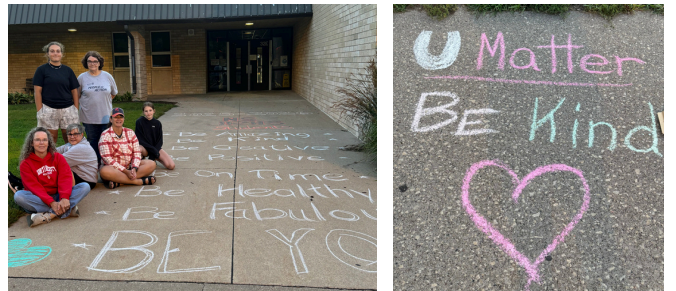 Be Amazing
Be Creative
Be Positive
Be On Time
Be Healthy
Be Fabulou
BE YO
U Matter
BE Kind